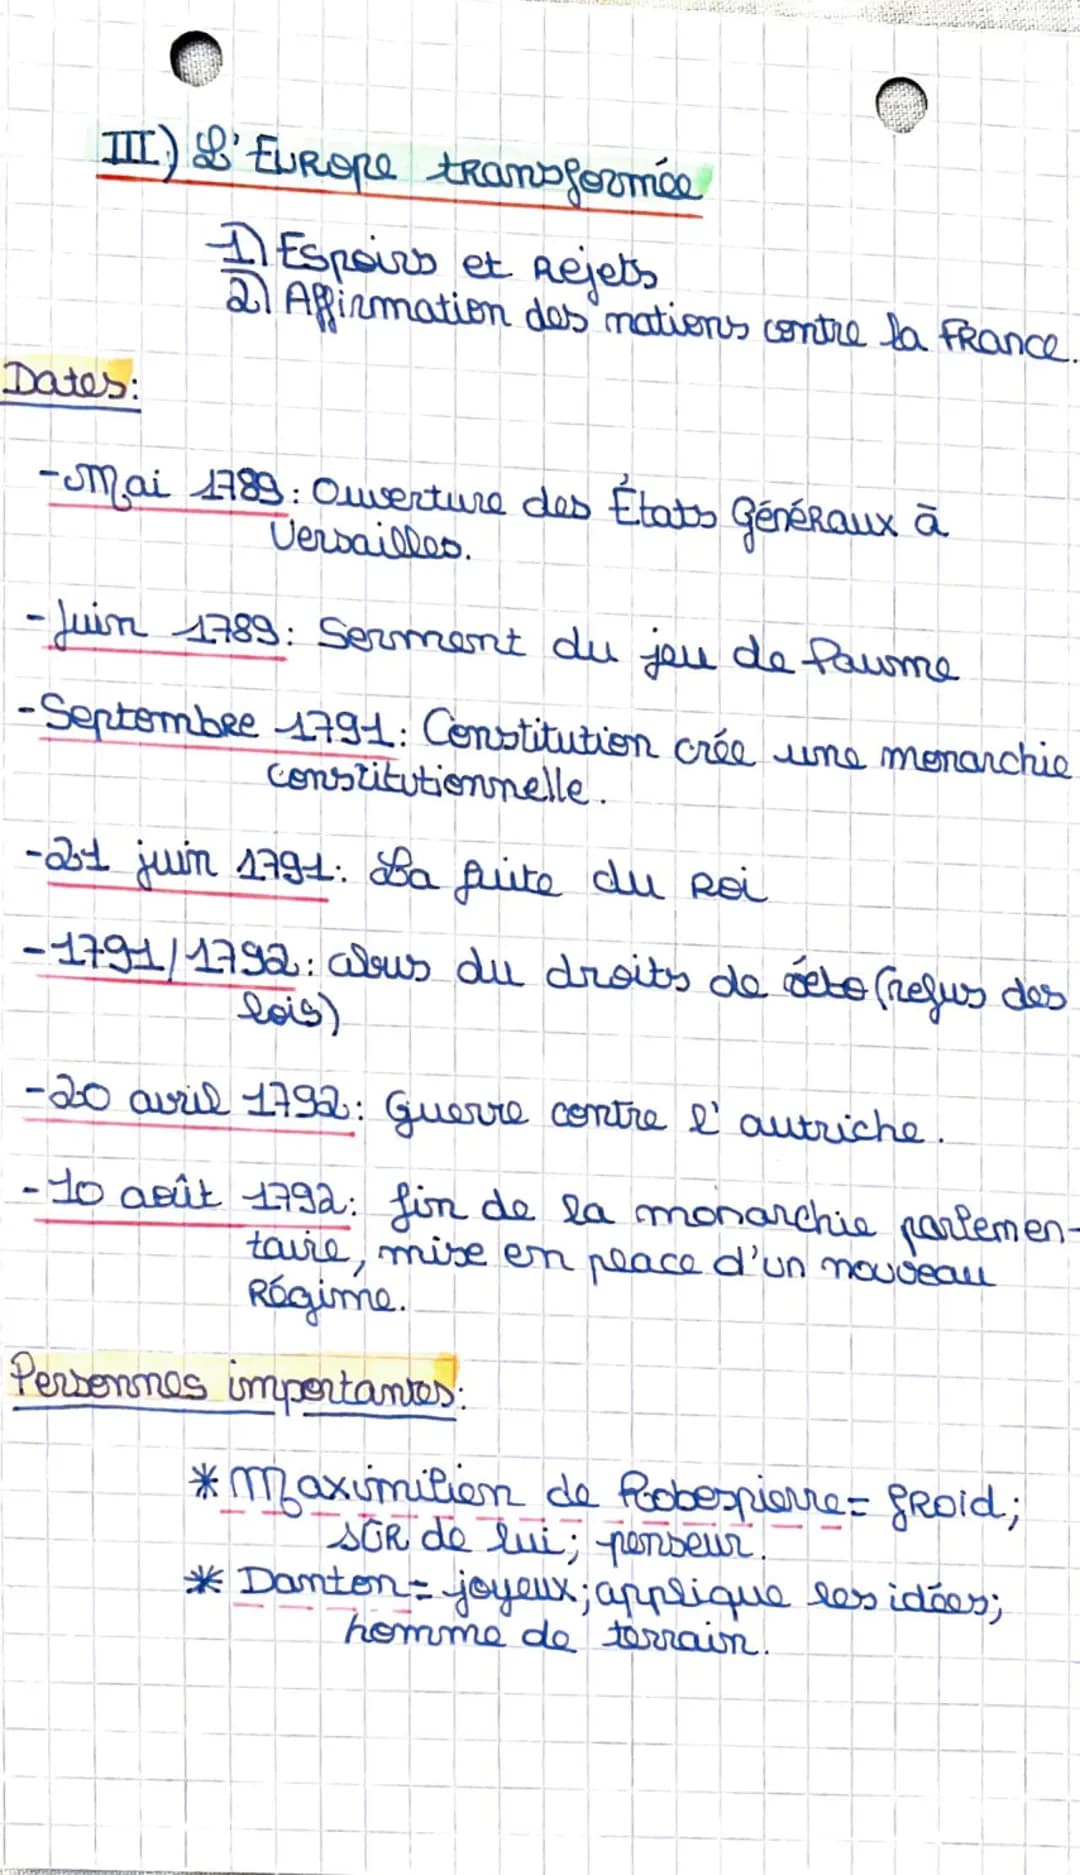 III) L'Europe transformée
1) Espoirs et Rejets
2) Affirmation des nations contre la France.
Dates:
-Mai 1789: Ouverture des États Généraux à
Versailles.
-Juin 1789: Serment du jeu de Paume
-Septembre 1791: Constitution crée une monarchie
constitutionnelle.
-21 juin 1791: La fuite du Roi
-1791/1792: abus du droits de
(refus des
lois)
-20 avril 1792: Guerre contre l'autriche.
-10 août 1792: fin de la monarchie parlemen-
taire, mise en place d'un nouveau
Régime.
Personnes importantes:
* Maximilien de Robespierre = froid;
sûr de lui; penseur.
* Danton = joyeux; applique les idées;
homme de terrain.